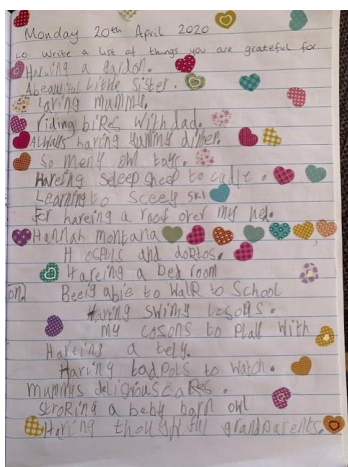 Monday 20th April 2020
Lo: Write a list of things you are grateful for
Having a garden.
A beautiful little sister.
Loving mummy.
riding bikes with dad.
Always having yummy dinner.
So meny owl toys.
Haveing sleep sheep to cudle.
Learning to sceey ski
for haveing a roof over my hed.
Hannah montana
Hospitls and doktos.
Haveing a bed room
Being able to walk to School
Having swimg lesons.
my cosons to play with
Haveing a tely.
Having tadpols to watch.
mummys delicious cakes.
stroking a baby barn owl
Having thoughtful grandparents.